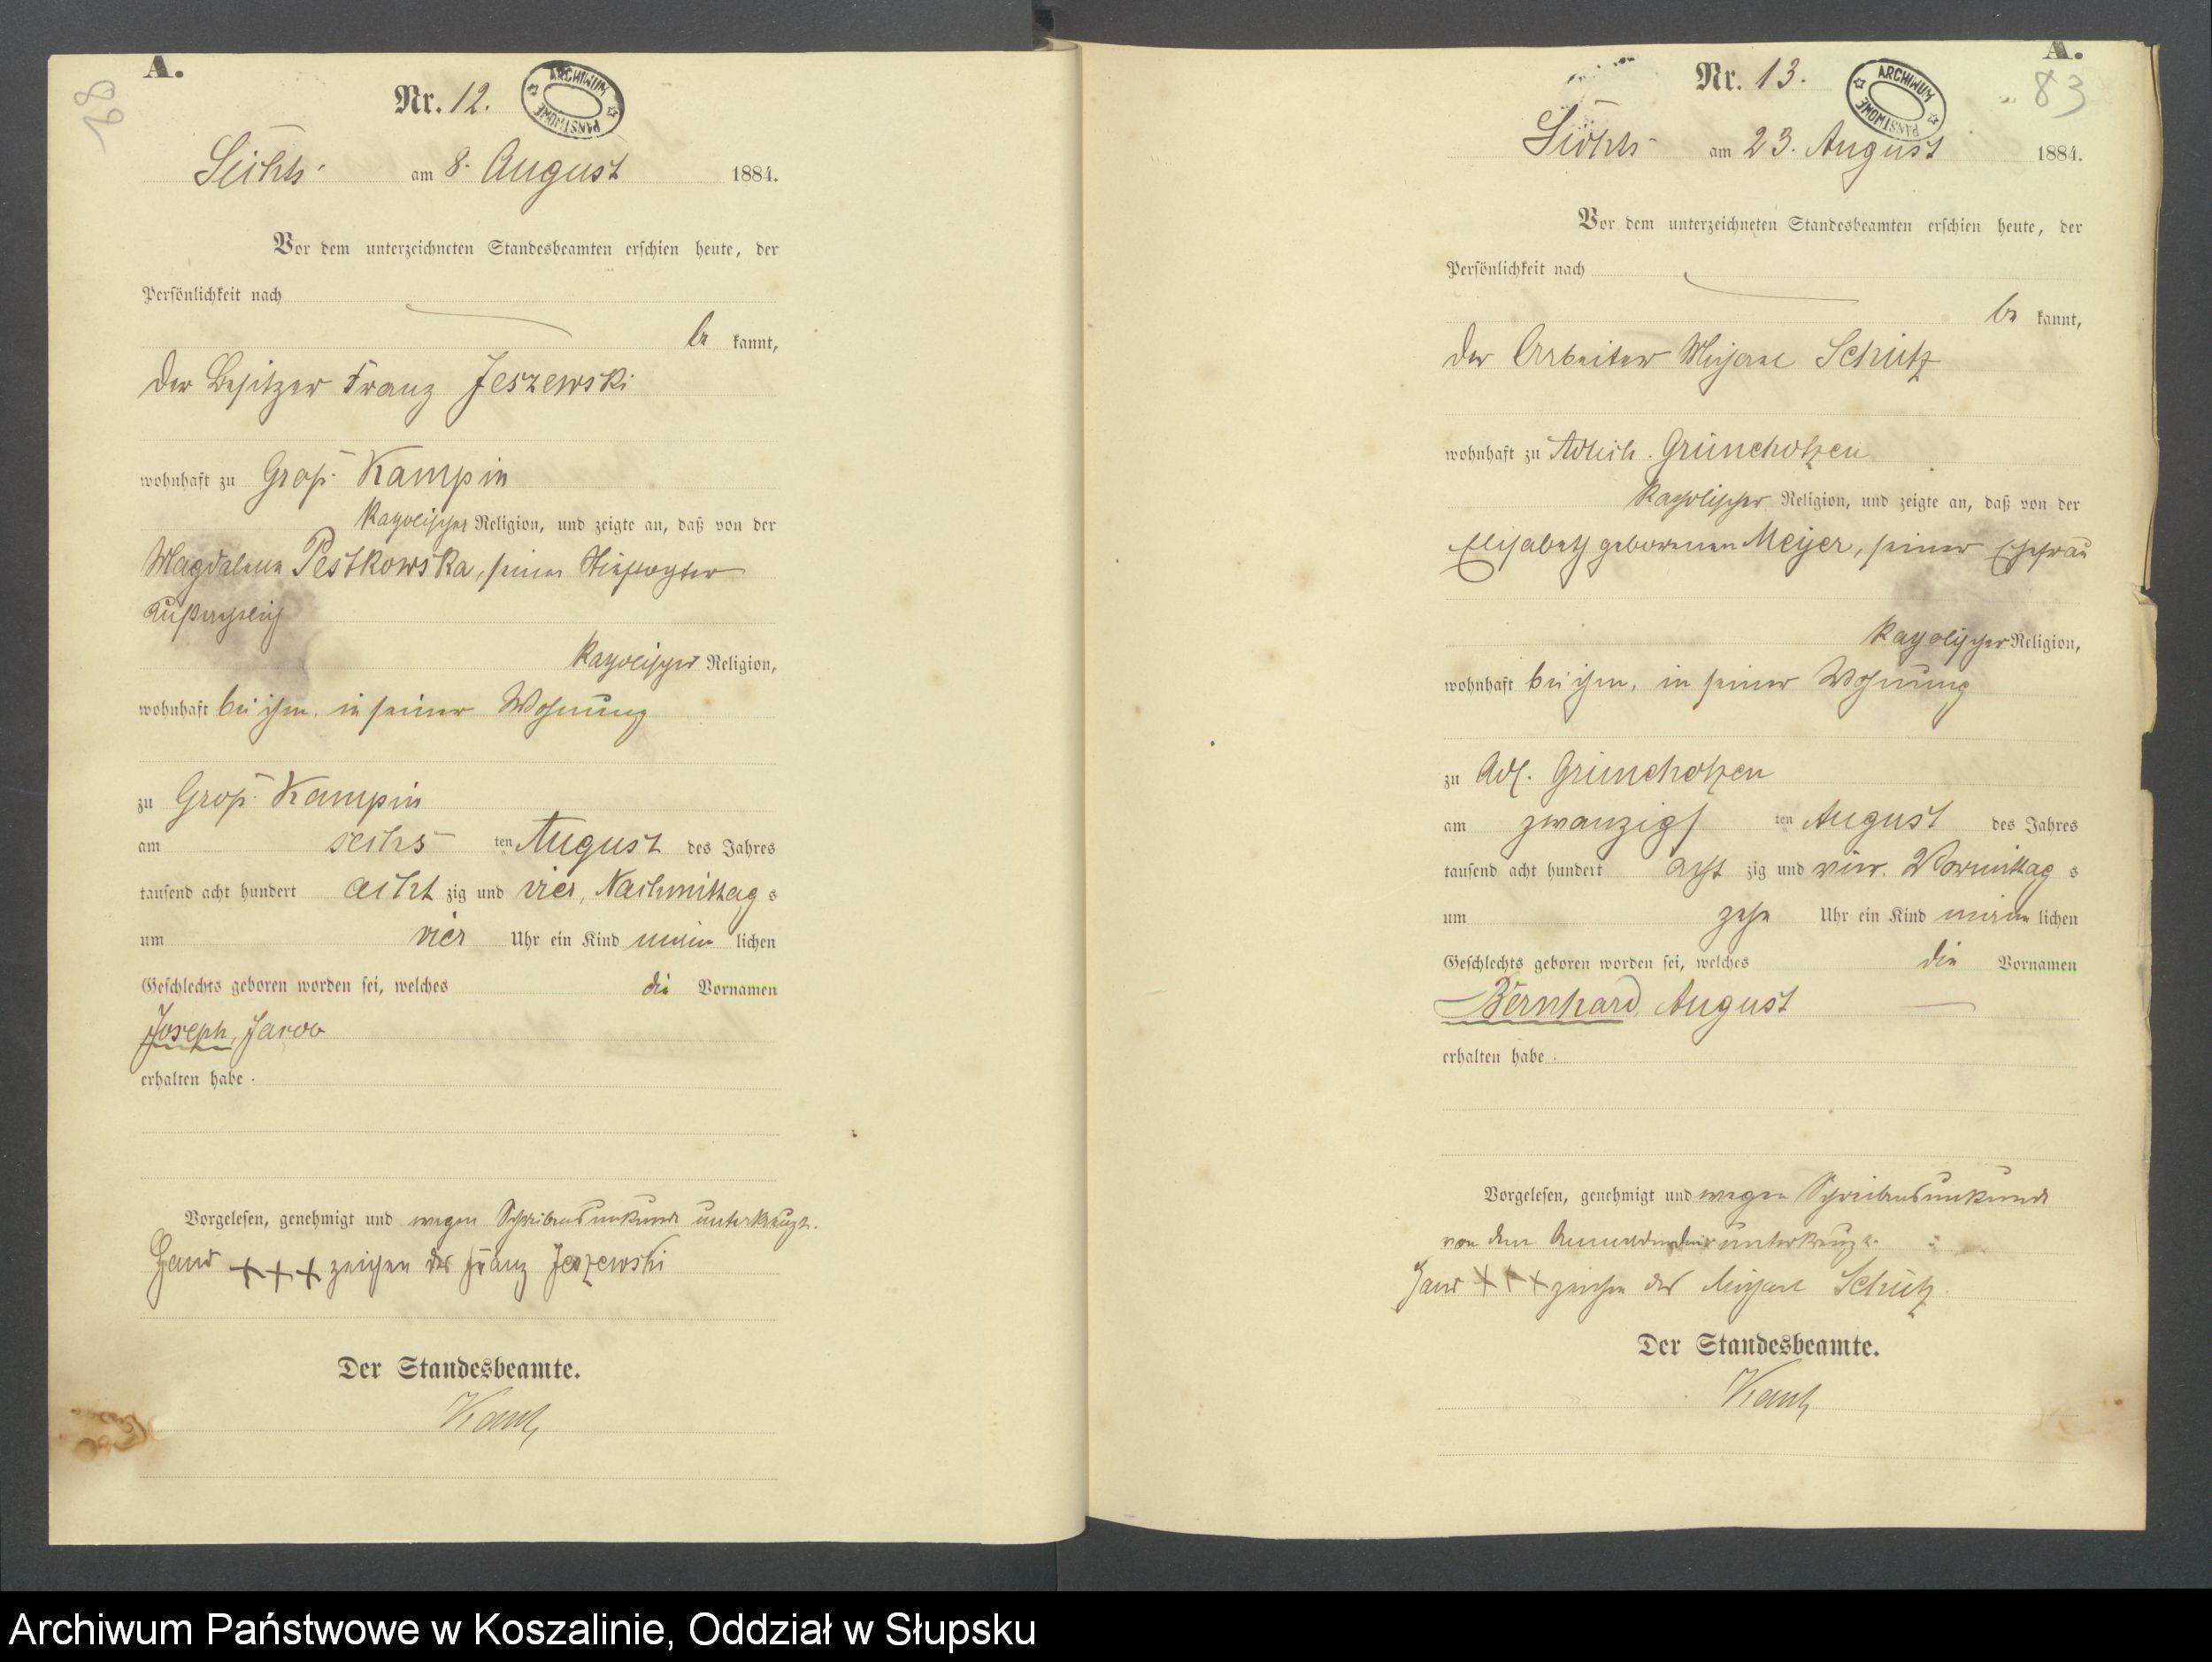 A.
68
Nr. 12.
ARCHIWUM PAŃSTWOWE
am 8. August 1884.
Vor dem unterzeichneten Standesbeamten erschien heute, der
Persönlichkeit nach
be kannt,
der Besitzer Franz Jeszewski
wohnhaft zu Groß Kampin
katholischer Religion, und zeigte an, daß von der
Magdalena Pestkowska, seiner Stieftochter
außerehelich
katholischer Religion,
wohnhaft bei ihm, in seiner Wohnung
zu Groß Kampin
am sechs ten August des Jahres
tausend acht hundert acht zig und vier, Nachmittag s
um vier Uhr ein Kind männ lichen
Geschlechts geboren worden sei, welches die Vornamen
Joseph, Jacob
erhalten habe.
Vorgelesen, genehmigt und wegen Schreibensunkunde unterkreuzt.
Hand +++ zeichen des Franz Jeszewski
Der Standesbeamte.
A.
83
Nr. 13.
ARCHIWUM PAŃSTWOWE
am 23. August 1884.
Vor dem unterzeichneten Standesbeamten erschien heute, der
Persönlichkeit nach
be kannt,
der Arbeiter Michael Schütz
wohnhaft zu Adlich. Grünchotzen
katholischer Religion, und zeigte an, daß von der
Elisabeth geborenen Meyer, seiner Ehefrau
katholischer Religion,
wohnhaft bei ihm, in seiner Wohnung
zu Adl. Grünchotzen
am zwanzigs ten August des Jahres
tausend acht hundert acht zig und vier. Vormittag s
um zehn Uhr ein Kind männ lichen
Geschlechts geboren worden sei, welches die Vornamen
Bernhard, August
erhalten habe.
Vorgelesen, genehmigt und wegen Schreibensunkunde
von dem Anmeldenden unterkreuzt.
Hand +++ zeichen des Michael Schütz.
Der Standesbeamte.
Archiwum Państwowe w Koszalinie, Oddział w Słupsku